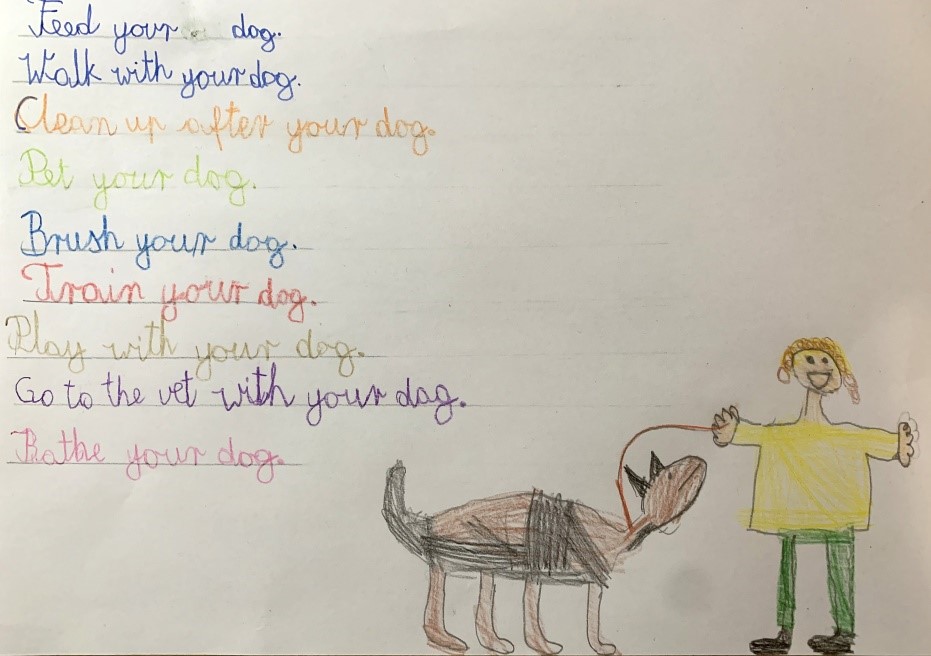 Feed your dog.
Walk with your dog.
Clean up after your dog.
Pet your dog.
Brush your dog.
Train your dog.
Play with your dog.
Go to the vet with your dog.
Bathe your dog.